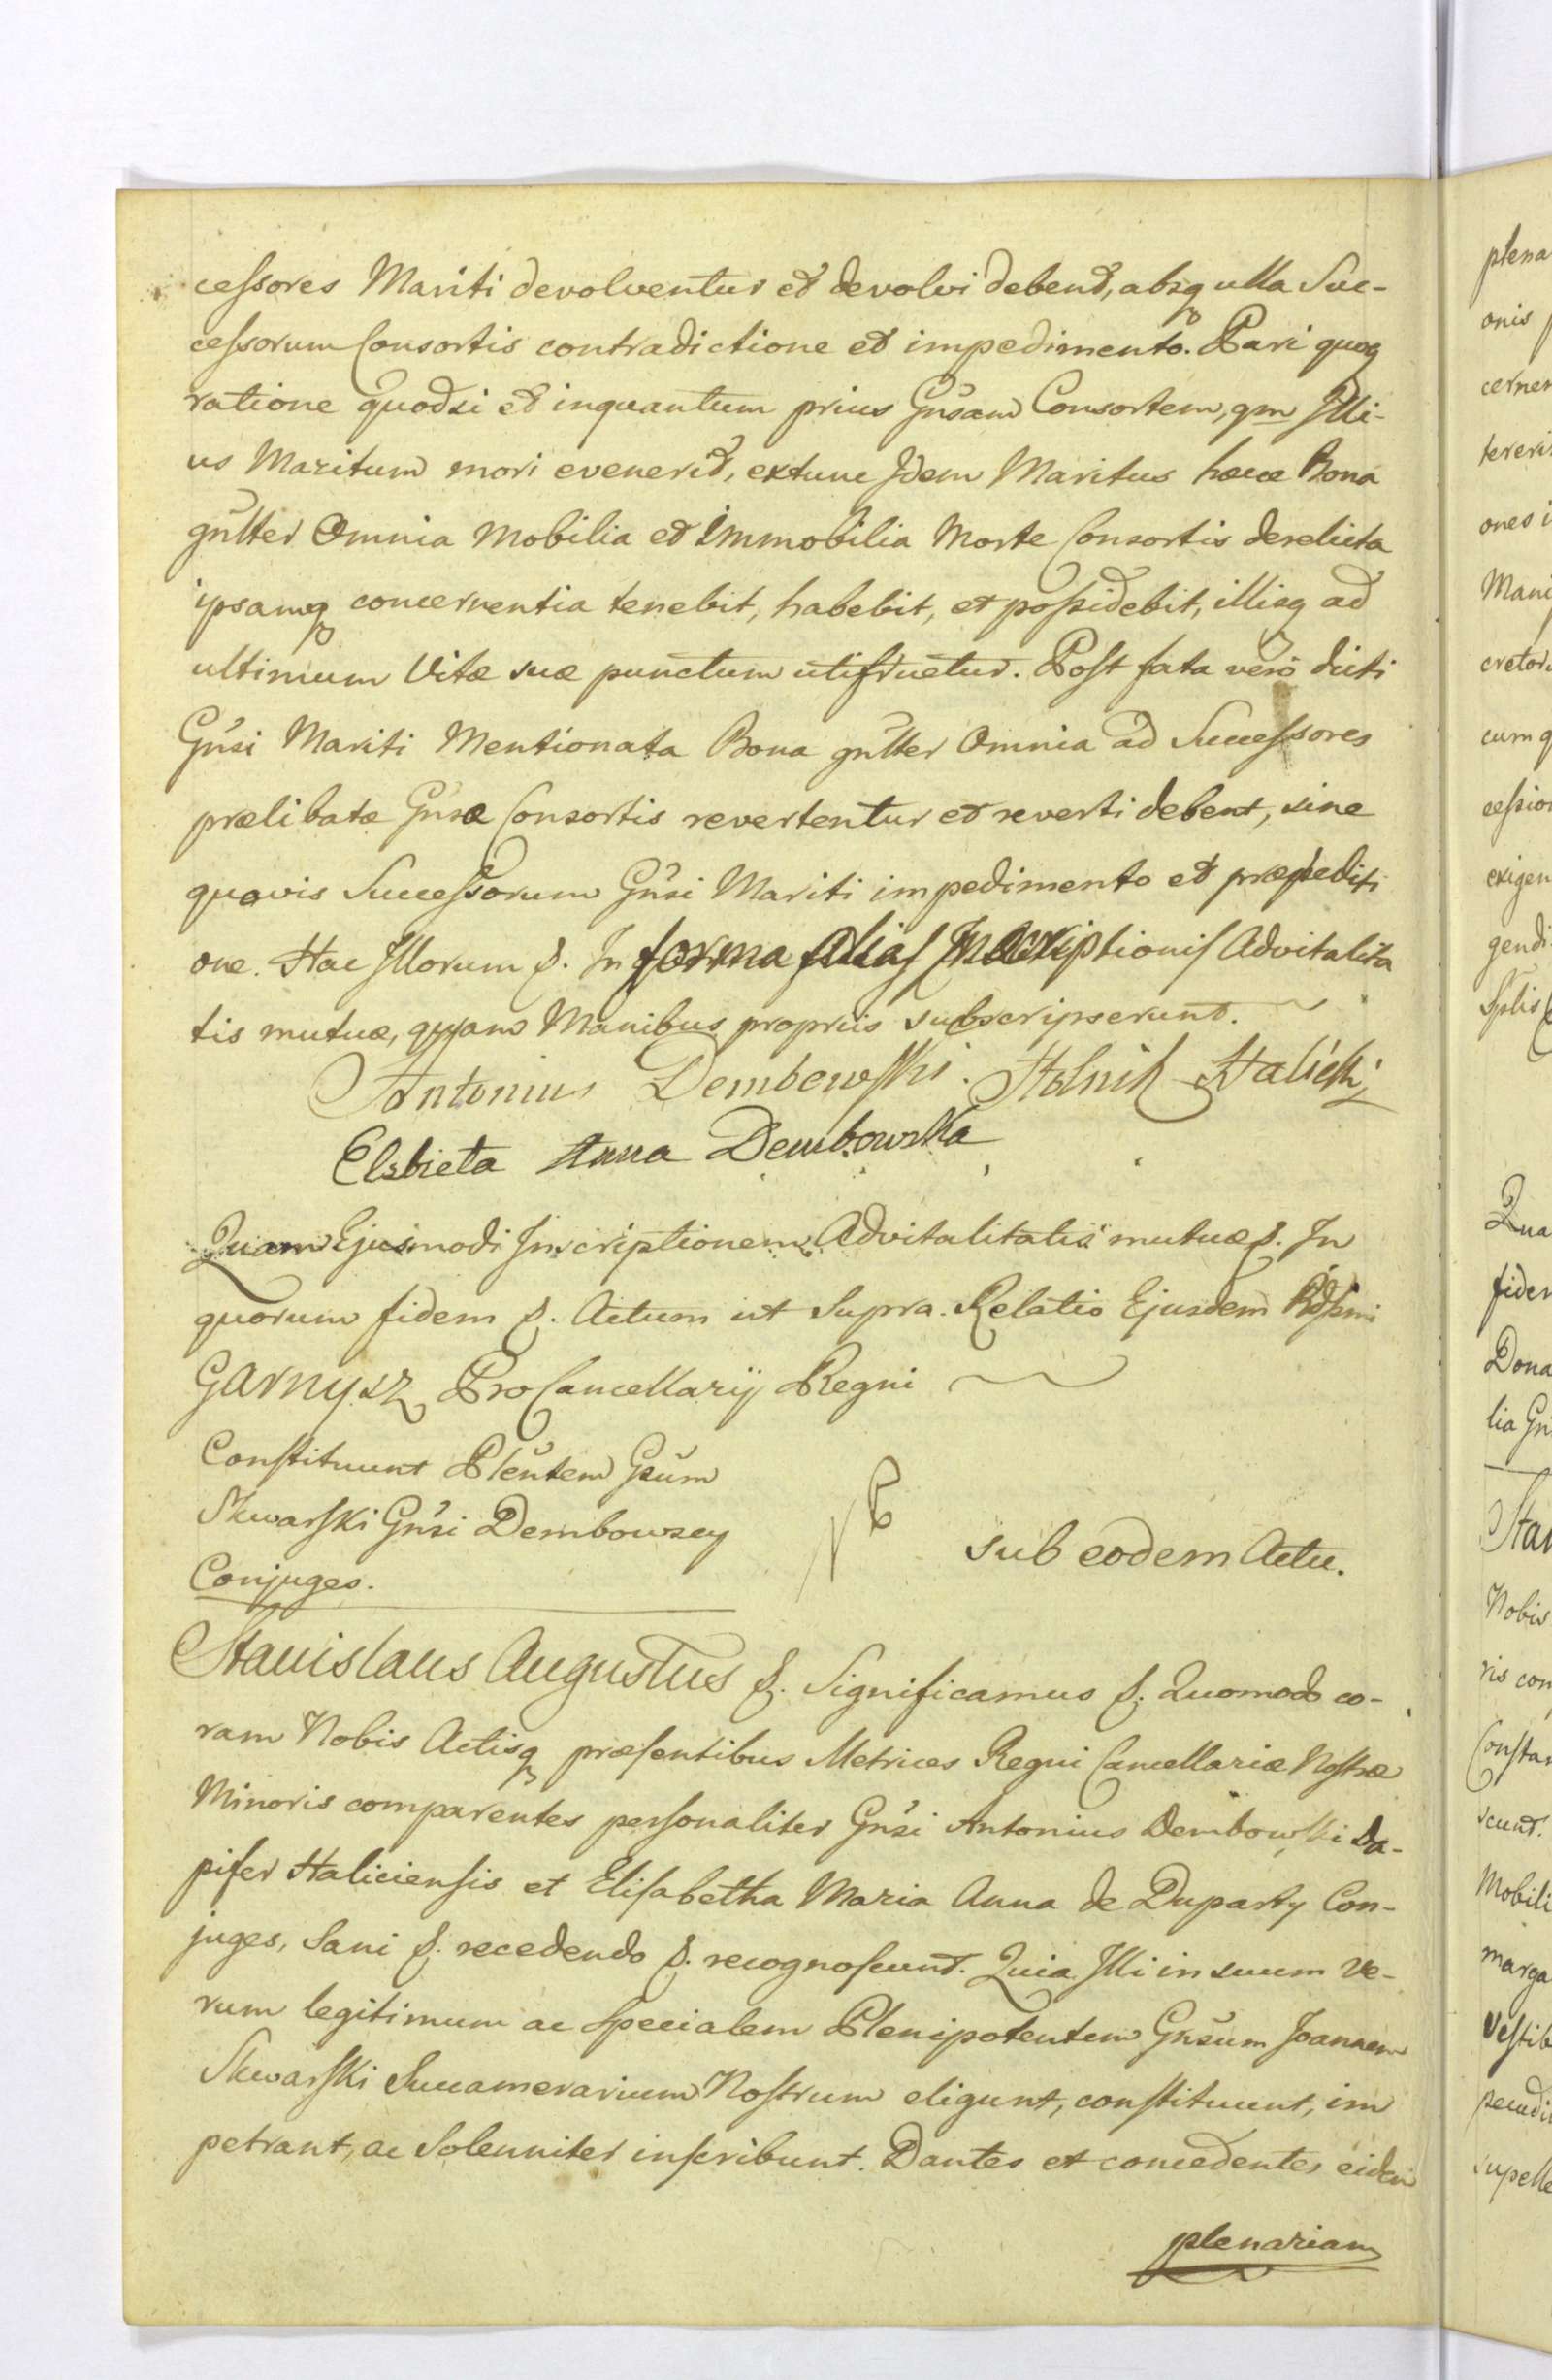 cessores Mariti devolventur et devolvi debent, absq ulla Suc-
cessorum Consortis contradictione et impedimento. Pari quoq
ratione quodsi et inquantum prius Gnsam Consortem, qm Illi-
us Maritum mori evenerit, extunc Idem Maritus hæce Bona
gnltter Omnia Mobilia et Immobilia Morte Consortis derelicta
ipsamq concernentia tenebit, habebit, et possidebit, illisq ad
ultimum Vitæ suæ punctum utifruetur. Post fata verò dicti
Gnsi Mariti Mentionata Bona gnltter Omnia ad Successores
prælibatæ Gnsæ Consortis revertentur et reverti debent, sine
quovis Successorum Gnsi Mariti impedimento et præpediti
one. Hac Illorum &. In forma alias Inscriptionis Advitalita
tis mutuæ, quam Manibus propriis subscripserunt.
Antonius Dembowski. Stolnik Halicki
Elzbieta Anna Dembowska
Quam Ejusmodi Inscriptionem Advitalitatis mutuæ &. In
quorum fidem &. Actum ut Supra. Relatio Ejusdem
Garnysz ProCancellarij Regni
Constituunt Plentem Gsum
Skwarski Gnsi Dembowscy
Conjuges.
NB
sub eodem Actu.
Stanislaus Augustus &. Significamus &. Quomodo co-
ram Nobis Actisq præsentibus Metrices Regni Cancellariæ Nostræ
Minoris comparentes personaliter Gnsi Antonius Dembowski Da-
pifer Haliciensis et Elisabetha Maria Anna de Duparty Con-
juges, Sani &. recedendo &. recognoscunt. Quia Illi in suum ve-
rum legitimum ac specialem Plenipotentem Gnsum Joannem
Skwarski Succamerarium Nostrum eligunt, constituunt, im
petrant, ac Solenniter inscribunt. Dantes et concedentes eidem
plenariam
plena
onis
cerner
ones i
cretor
cum q
cessio
exigen
gendi
Qua
fidem
Dona
lia Gn
Sta
Nobis
ris com
Constan
scunt.
Mobili
marga
Vestib
supelle